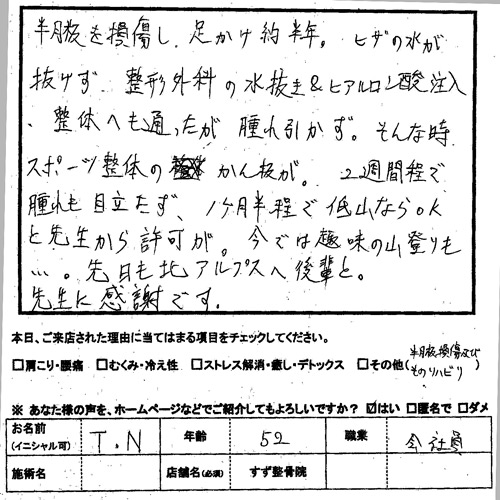 半月板を損傷し、足かけ約半年。ヒザの水が
抜けず、整形外科の水抜き&ヒアルロン酸注入
、整体へも通ったが腫れ引かず。そんな時
スポーツ整体のかん板が。2週間程で
腫れも目立たず、1ヶ月半程で低山ならOK
と先生から許可が。今では趣味の山登りも
…。先日も北アルプスへ後輩と。
先生に感謝です。
本日、ご来店された理由に当てはまる項目をチェックしてください。
□肩こり・腰痛 □むくみ・冷え性 □ストレス解消・癒し・デトックス □その他(半月板損傷及びそのリハビリ)
※ あなた様の声を、ホームページなどでご紹介してもよろしいですか? ☑はい □匿名で □ダメ
お名前(イニシャル可) T.N 年齢 52 職業 会社員
施術名 店舗名(必須) すず整骨院